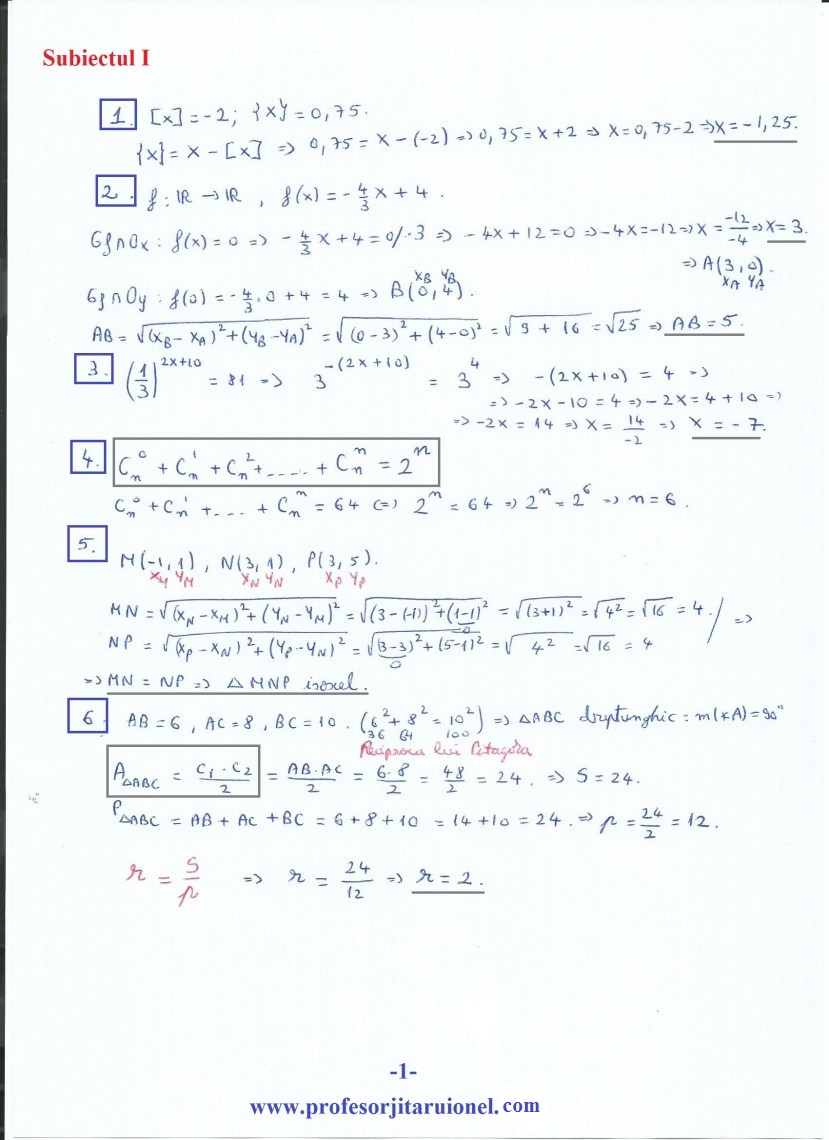 Subiectul I
1. [x] = -2; {x} = 0,75.
{x} = x - [x] => 0,75 = x - (-2) => 0,75 = x + 2 => x = 0,75 - 2 => x = -1,25.
2. f : ℝ → ℝ , f(x) = -4/3 x + 4 .
Gf ∩ Ox : f(x) = 0 => -4/3 x + 4 = 0 /·3 => -4x + 12 = 0 => -4x = -12 => x = -12/-4 => x = 3.
=> A(3, 0).
x_A y_A
x_B y_B
Gf ∩ Oy : f(0) = -4/3 · 0 + 4 = 4 => B(0, 4).
AB = √((x_B - x_A)² + (y_B - y_A)²) = √((0-3)² + (4-0)²) = √(9 + 16) = √25 => AB = 5.
3. (1/3)^(2x+10) = 81 => 3^(-(2x+10)) = 3^4 => -(2x+10) = 4 =>
=> -2x - 10 = 4 => -2x = 4 + 10 =>
=> -2x = 14 => x = 14/-2 => x = -7.
4. C_n^0 + C_n^1 + C_n^2 + ..... + C_n^n = 2^n
C_n^0 + C_n^1 + ... + C_n^n = 64 <=> 2^n = 64 => 2^n = 2^6 => n = 6 .
5. M(-1, 1) , N(3, 1) , P(3, 5).
x_M y_M x_N y_N x_P y_P
MN = √((x_N - x_M)² + (y_N - y_M)²) = √((3-(-1))² + (1-1)²) = √((3+1)²) = √4² = √16 = 4. / =>
0
NP = √((x_P - x_N)² + (y_P - y_N)²) = √((3-3)² + (5-1)²) = √4² = √16 = 4
0
=> MN = NP => Δ MNP isoscel.
6. AB = 6 , AC = 8 , BC = 10 . (6² + 8² = 10²) => ΔABC dreptunghic : m(∢A) = 90°
36 64 100
Reciproca lui Pitagora
A_ΔABC = c₁ · c₂/2 = AB·AC/2 = 6·8/2 = 48/2 = 24 . => S = 24.
P_ΔABC = AB + AC + BC = 6 + 8 + 10 = 14 + 10 = 24 . => p = 24/2 = 12 .
r = S/p => r = 24/12 => r = 2 .
-1-
www.profesorjitaruionel. com